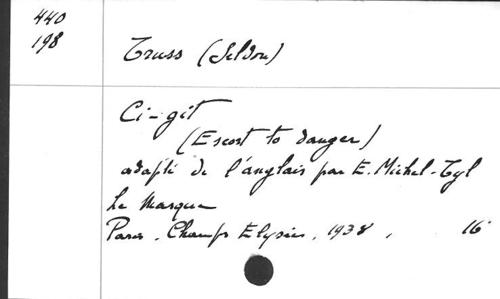 440
198
Truss (Seldon)
Ci-gît
(Escort to danger)
adapté de l'anglais par E. Michel-Tyl
Le Masque
Paris. Champs Elysées, 1938, 16°